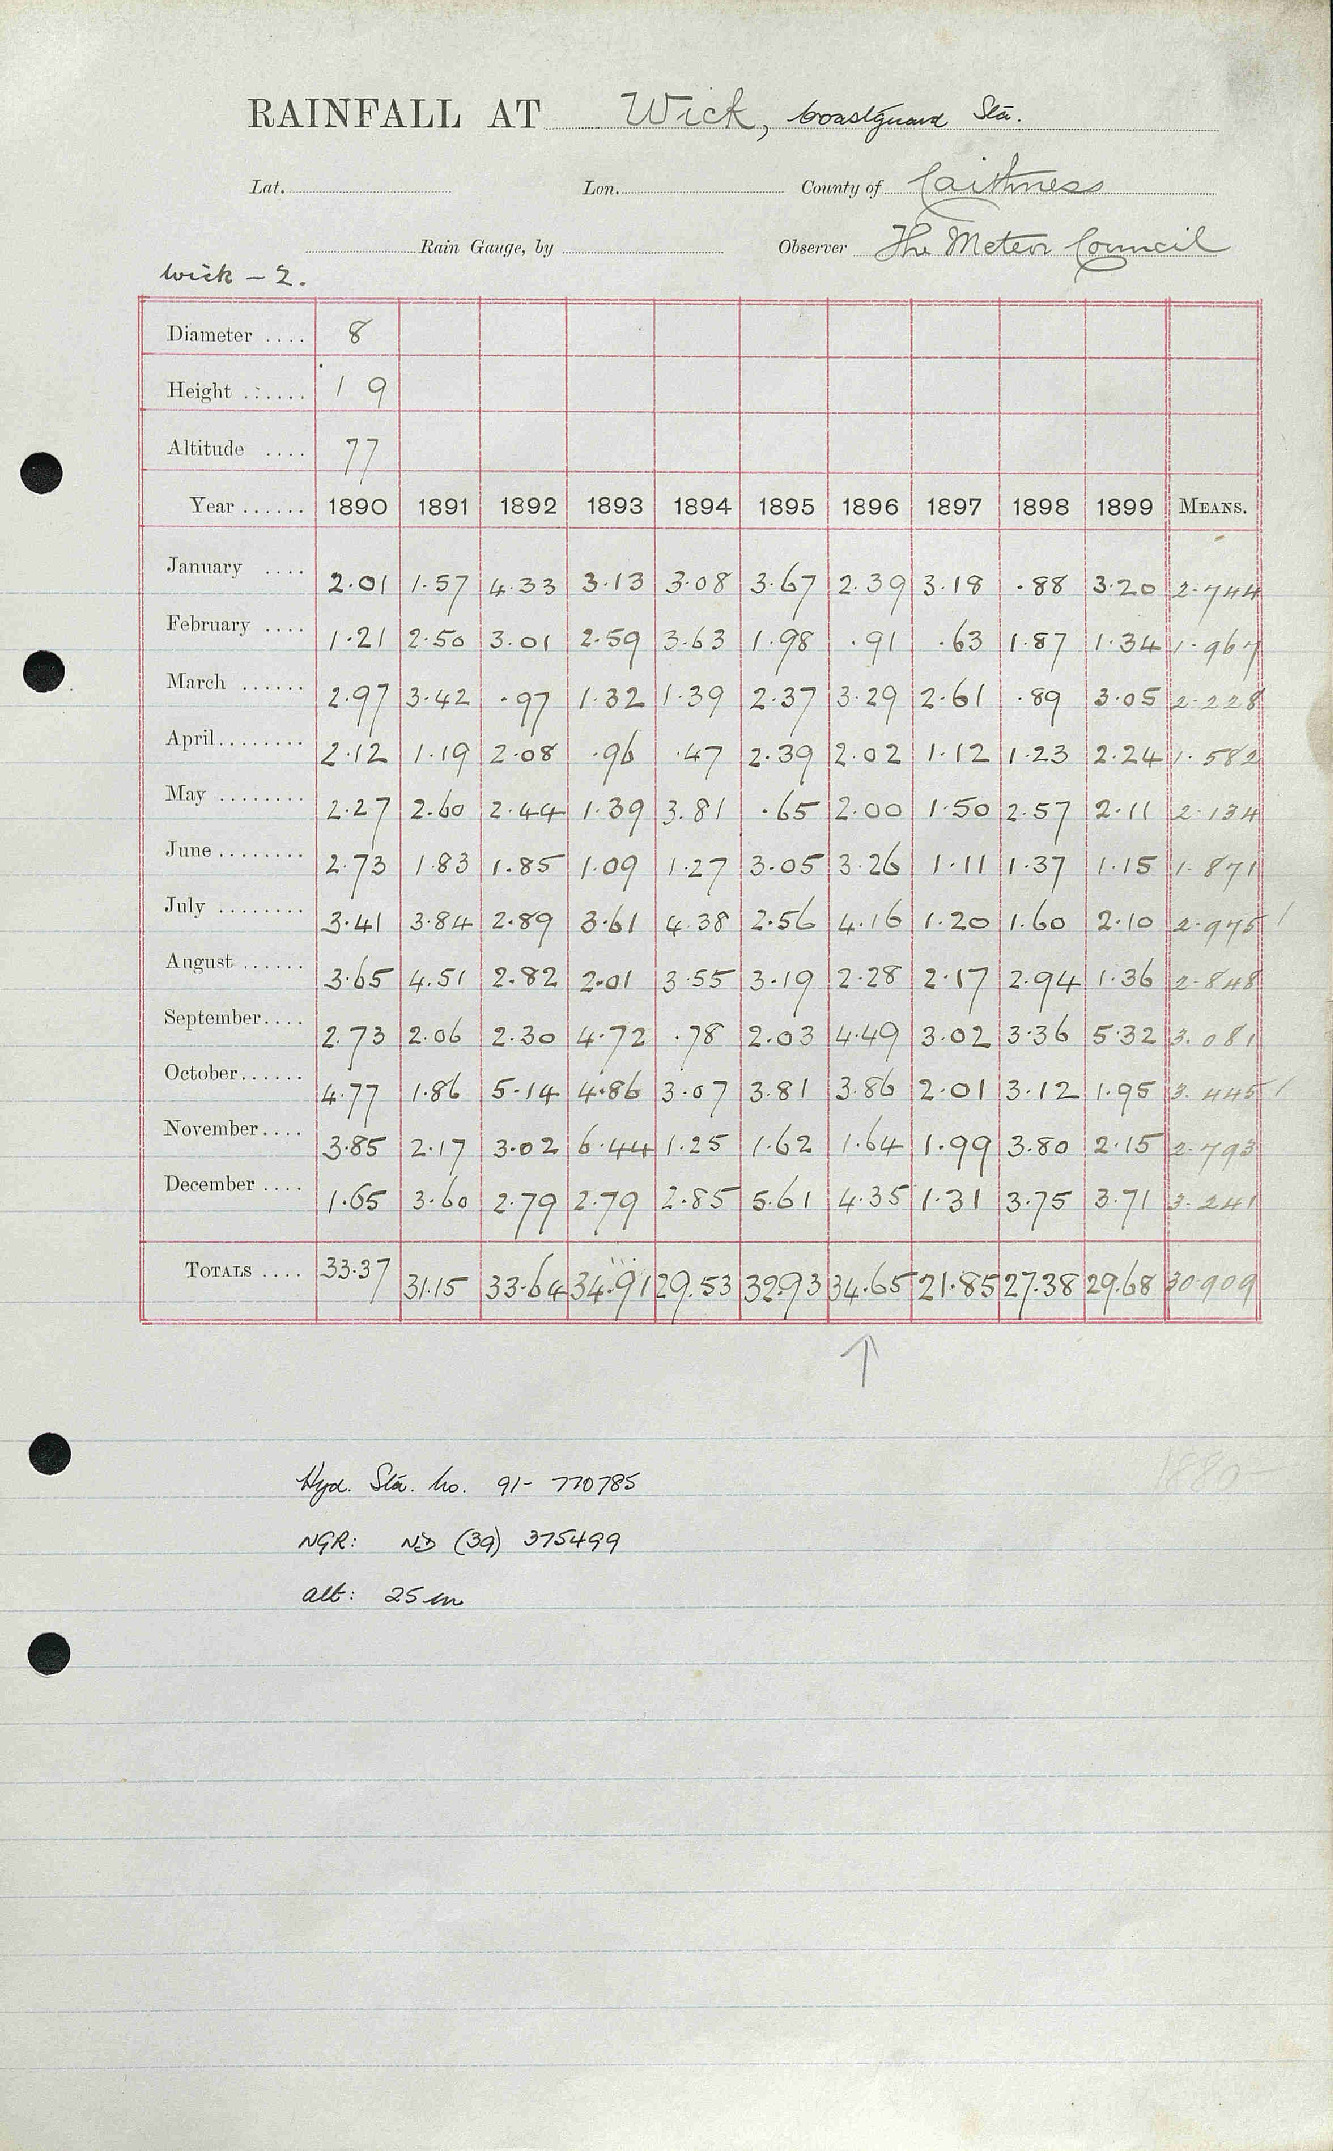 RAINFALL AT Wick, Coastguard Sta.
Lat. Lon. County of Caithness
Rain Gauge, by Observer The Meteor Council
Wick - 2.
Diameter .... 8
Height ...... 1 9
Altitude .... 77
Year ...... 1890 1891 1892 1893 1894 1895 1896 1897 1898 1899 MEANS.
January .... 2.01 1.57 4.33 3.13 3.08 3.67 2.39 3.18 .88 3.20 2.744
February .... 1.21 2.50 3.01 2.59 3.63 1.98 .91 .63 1.87 1.34 1.967
March ...... 2.97 3.42 .97 1.32 1.39 2.37 3.29 2.61 .89 3.05 2.228
April........ 2.12 1.19 2.08 .96 .47 2.39 2.02 1.12 1.23 2.24 1.582
May ........ 2.27 2.60 2.44 1.39 3.81 .65 2.00 1.50 2.57 2.11 2.134
June ........ 2.73 1.83 1.85 1.09 1.27 3.05 3.26 1.11 1.37 1.15 1.871
July ........ 3.41 3.84 2.89 3.61 4.38 2.56 4.16 1.20 1.60 2.10 2.975
August ...... 3.65 4.51 2.82 2.01 3.55 3.19 2.28 2.17 2.94 1.36 2.848
September.... 2.73 2.06 2.30 4.72 .78 2.03 4.49 3.02 3.36 5.32 3.081
October...... 4.77 1.86 5.14 4.86 3.07 3.81 3.86 2.01 3.12 1.95 3.445
November.... 3.85 2.17 3.02 6.44 1.25 1.62 1.64 1.99 3.80 2.15 2.793
December .... 1.65 3.60 2.79 2.79 2.85 5.61 4.35 1.31 3.75 3.71 3.241
TOTALS .... 33.37 31.15 33.64 34.91 29.53 32.93 34.65 21.85 27.38 29.68 30.909
1880-
Hyd. Sta. No. 91- 770785
NGR: ND (39) 375499
alt: 25 m